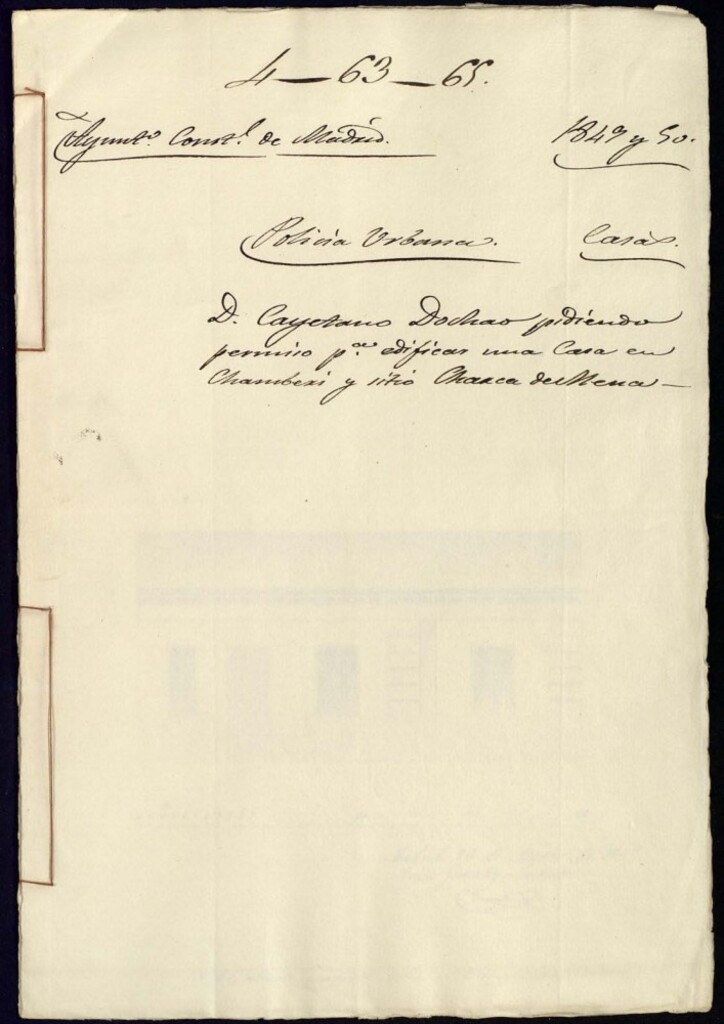 4-63-65.
Ayunto. Constl. de Madrid. 1849 y 50.
Policia Urbana. Casas.
D. Cayetano Dochao pidiendo
permiso pa. edificar una Casa en
Chamberi y sitio Charca de Mena-